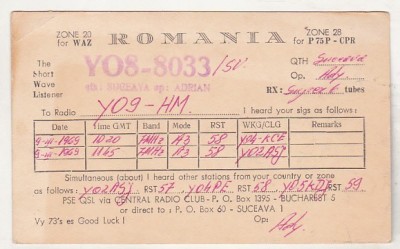 ZONE 20 for WAZ
ROMANIA
ZONE 28 for P75P - CPR
The Short Wave Listener
YO8-8033/SV
stn: SUCEAVA op: ADRIAN
QTH Suceava
Op. Ady
RX: tubes
To Radio YO9-HM. I heard your sigs as follows:
Date Time GMT Band Mode RST WKG/CLG Remarks
9-III-1969 1020 7MHz A3 58 YO4-KCE
9-III-1969 1165 7MHz A3 58 YO2ASJ
Simultaneous (about) I heard other stations from your country or zone
as follows: YO2ASJ RST 57 YO4PE RST 58 YO5KDJ RST 59
PSE QSL via CENTRAL RADIO CLUB - P. O. Box 1395 - BUCHAREST 5
or direct to: P. O. Box 60 - SUCEAVA 1
Vy 73's es Good Luck! Op: Ady